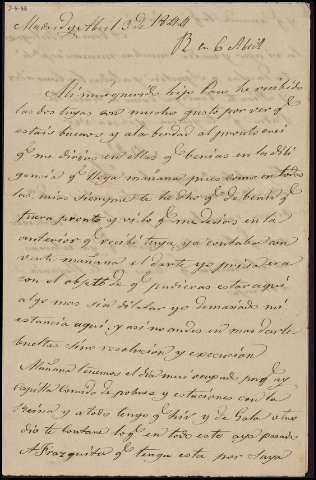 Madrid y Abril 3 de 1844
R en 6 Abril
Mi muy querido hijo he recibido
las dos tuyas con mucho gusto por ver q.e
estais buenos y a la berdad al pronto crei
q.e me dirias en ellas q.e benias en la dili
gencia q.e llega mañana pues como en todas
las mias siempre te he dho q.e de benir q.e
fuera pronto y vi lo q.e me decias en la
anterior q.e recibi tuya, ya contaba con
verte mañana el darte yo prisa era
con el objeto de q.e pudieras estar aqui
algo mas sin dilatar yo demasiado mi
estancia aqui, y asi no andes en mas darle
bueltas sino resolucion y execucion
Mañana tenemos el dia muy ocupado porq.e ay
capilla comida de pobres y estaciones con la
Reina y a todo tengo q.e hir y de Gala otro
dia te contare lo q.e en todo esto aya pasado
A Frazquita q.e tenga esta por suya